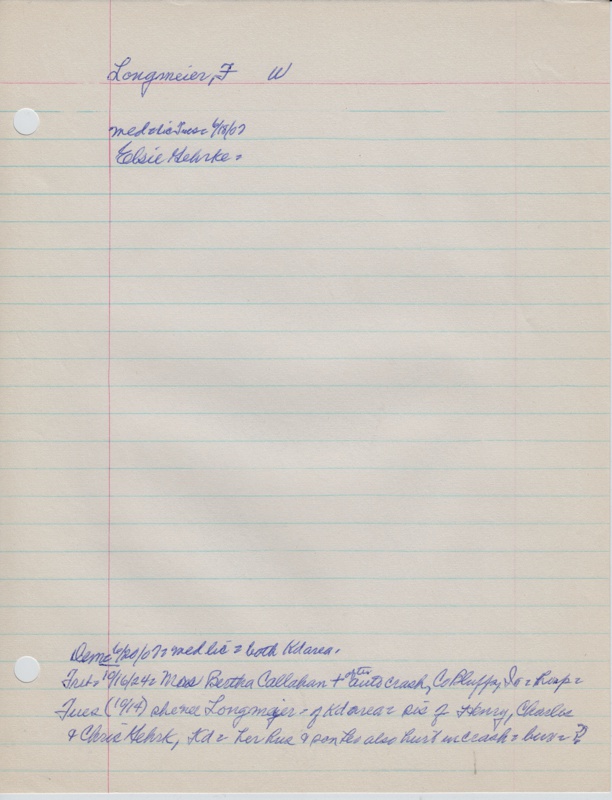 Longmeier, F W
med = lic Tues = 6/18/07
Elsie Gehrke =
Dem = 6/20/07 = med lic = both Kd area.
Trib. 10/16/24 = Mrs Bertha Callahan + after auto crash, Co Bluffs, Io = hosp =
Tues (10/14) she nee Longmeier - of Kd area = sis of Henry, Charlie
& Chris Gehrk, Kd = her hus & son Leo also hurt in crash = bur = ?